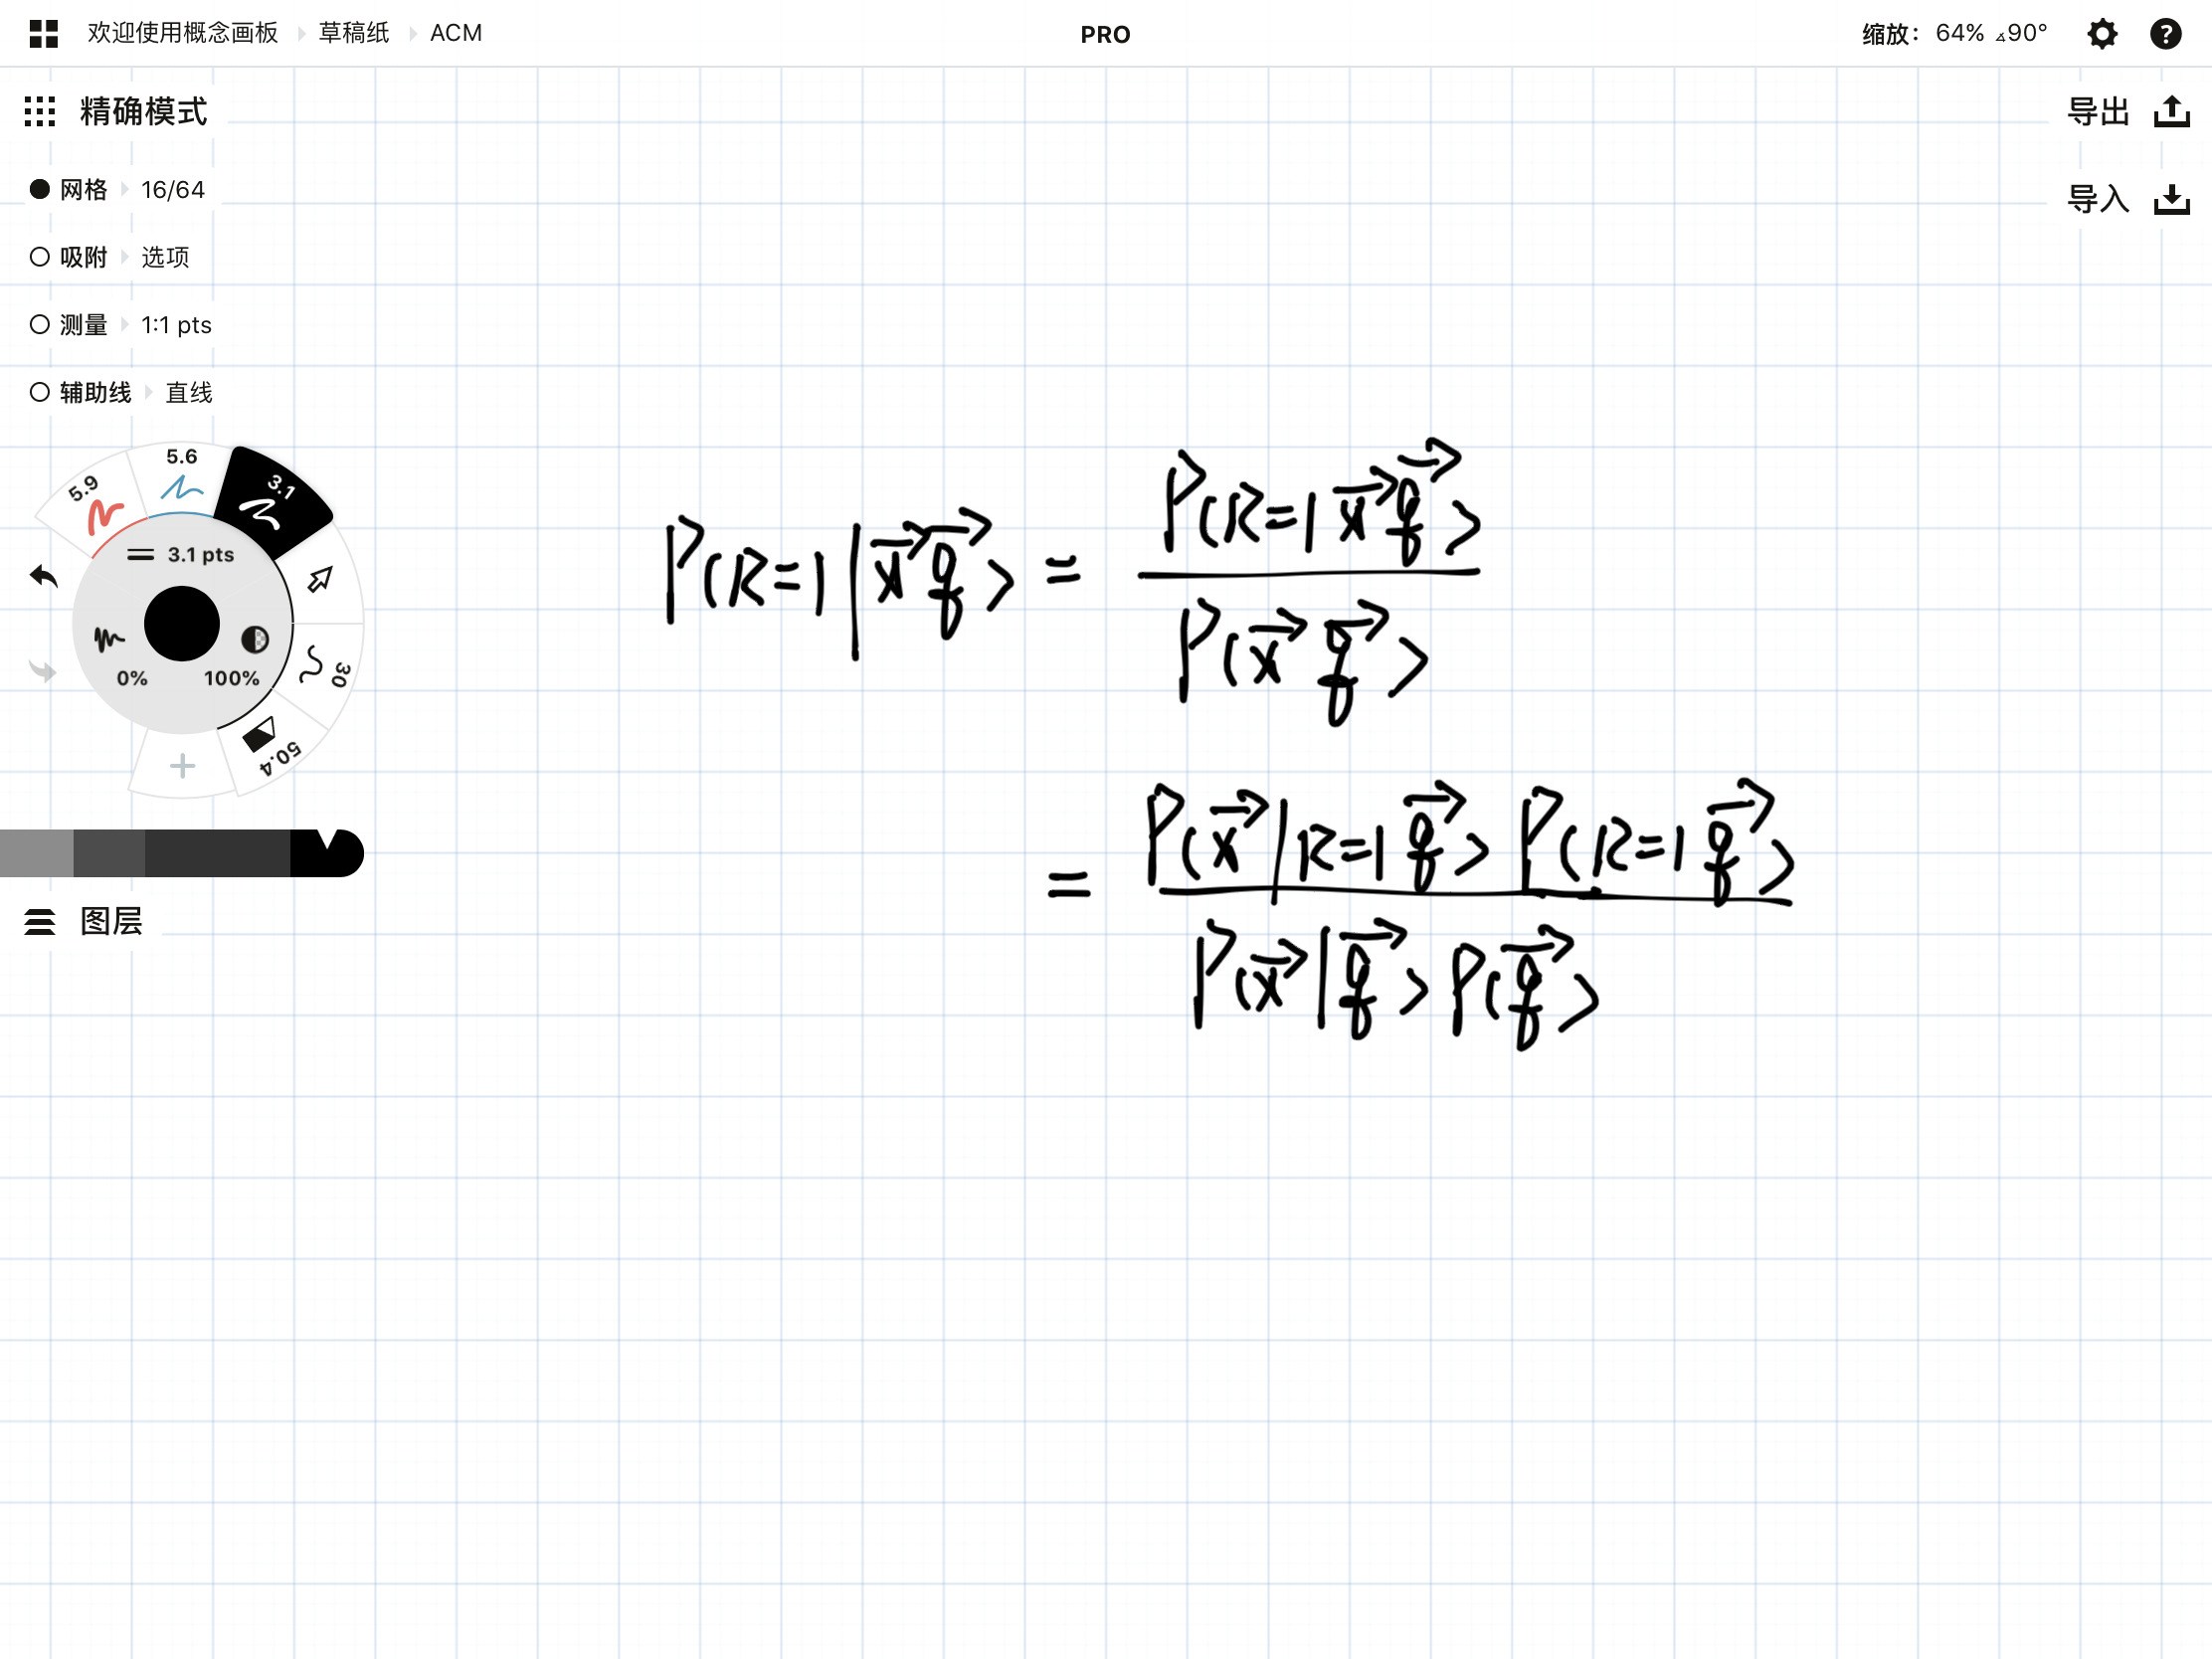 欢迎使用概念画板 草稿纸 ACM PRO 缩放： 64% ⊿90° ?
精确模式 导出
网格 16/64 导入
吸附 选项
测量 1:1 pts
辅助线 直线
5.9 5.6 3.1
3.1 pts
0% 100% 30
50.4
+
图层
P(R=1|x⃗ q⃗) = P(R=1 x⃗ q⃗) / P(x⃗ q⃗)
= P(x⃗|R=1 q⃗) P(R=1 q⃗) / P(x⃗|q⃗) P(q⃗)